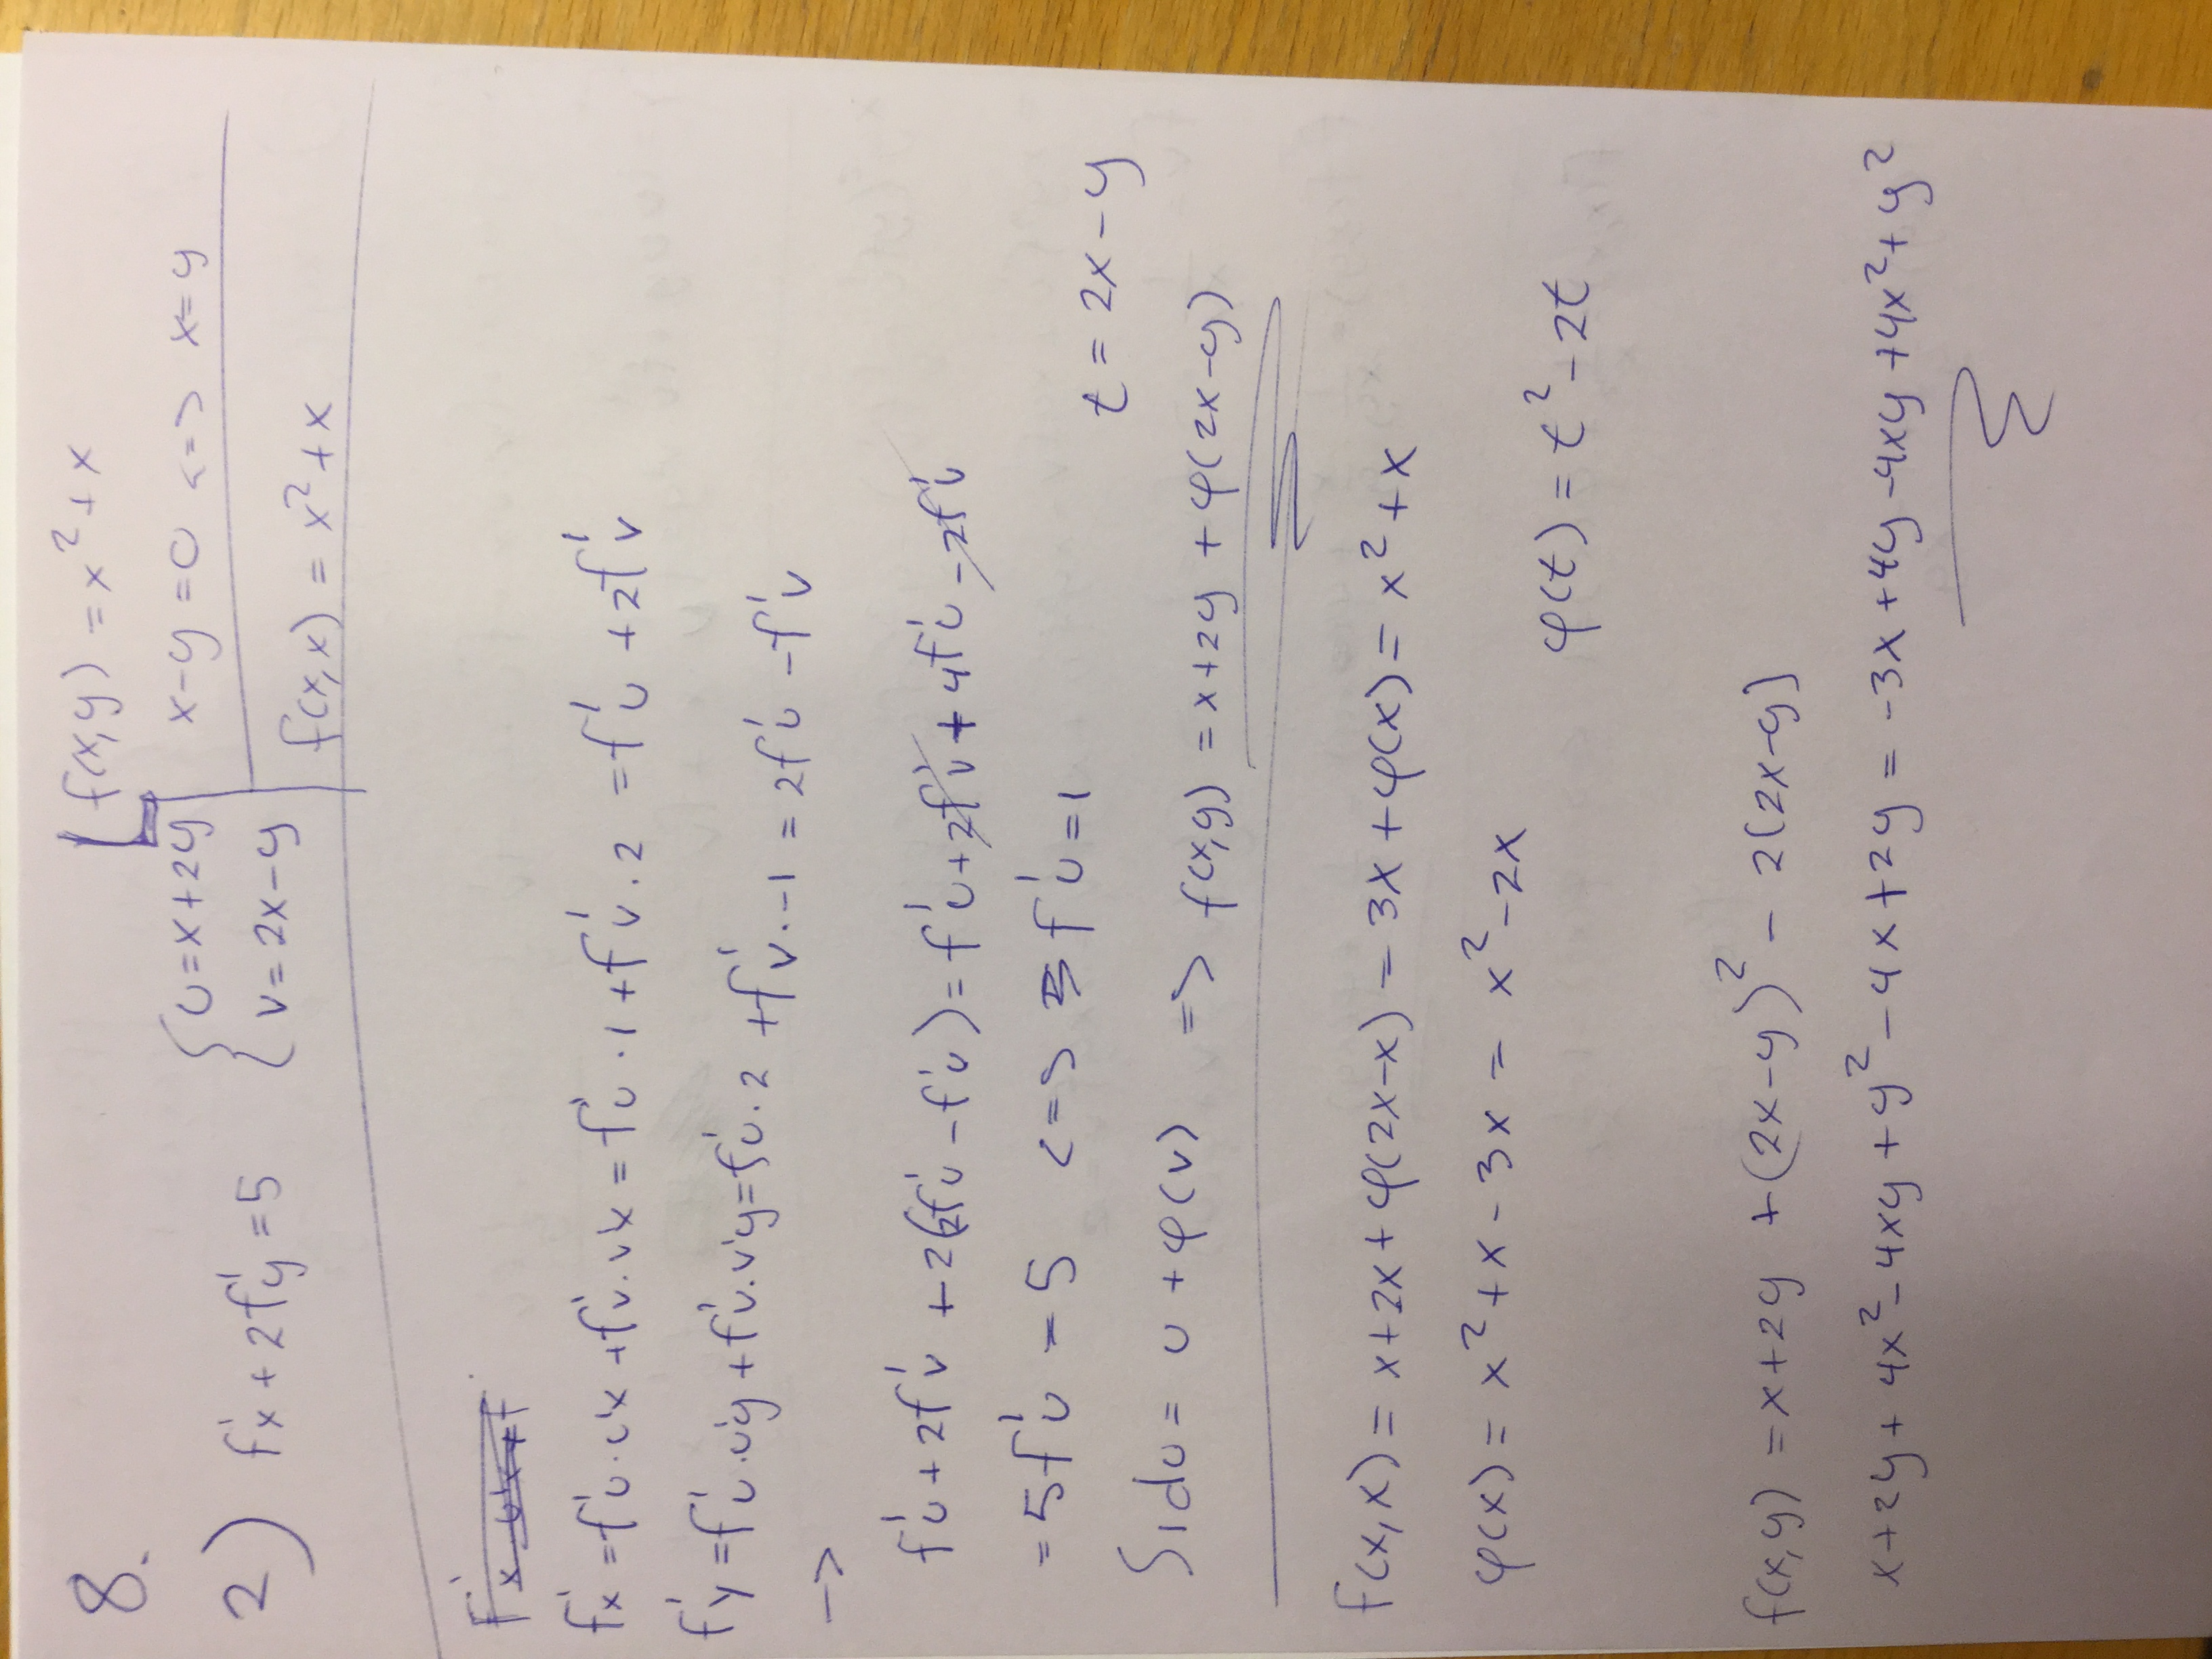 8.
f(x,y) = x² + x
2) f'x + 2f'y = 5
{ u = x + 2y
v = 2x - y
x - y = 0 <=> x = y
f(x,x) = x² + x
f'x = f'u · u'x + f'v · v'x = f'u · 1 + f'v · 2 = f'u + 2f'v
f'y = f'u · u'y + f'v · v'y = f'u · 2 + f'v · -1 = 2f'u - f'v
->
f'u + 2f'v + 2(2f'u - f'v) = f'u + 2f'v + 4f'u - 2f'v
= 5f'u = 5 <=> f'u = 1
t = 2x - y
∫1du = u + φ(v) => f(x,y) = x + 2y + φ(2x - y)
f(x,x) = x + 2x + φ(2x - x) = 3x + φ(x) = x² + x
φ(x) = x² + x - 3x = x² - 2x
φ(t) = t² - 2t
f(x,y) = x + 2y + (2x - y)² - 2(2x - y)
x + 2y + 4x² - 4xy + y² - 4x + 2y = -3x + 4y - 4xy + 4x² + y²